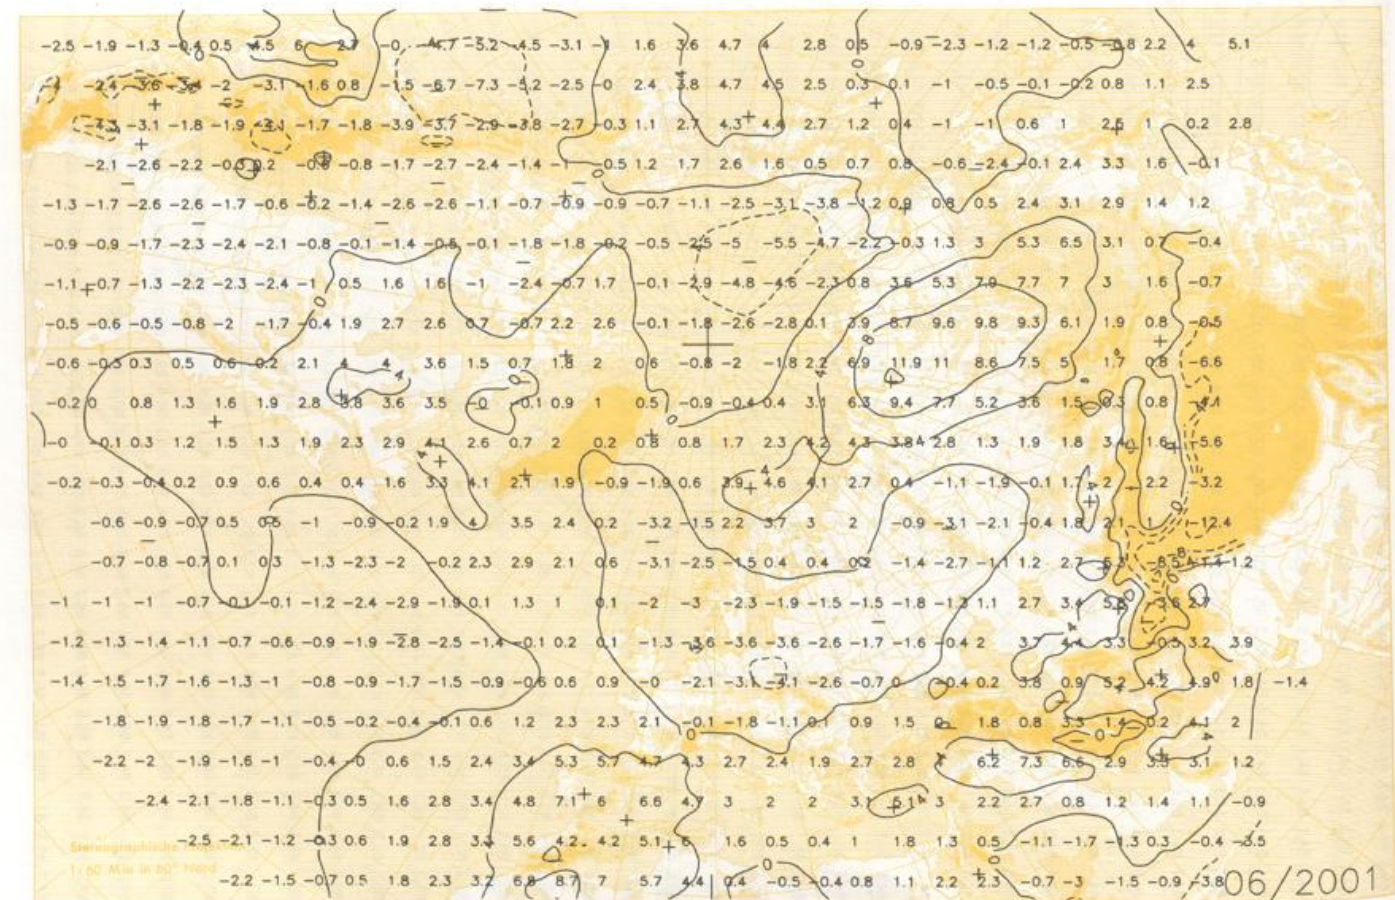 -2.5 -1.9 -1.3 -0.4 0.5 4.5 6 2.7 -0 -4.7 -5.2 -4.5 -3.1 -1 1.6 3.6 4.7 4 2.8 0.5 -0.9 -2.3 -1.2 -1.2 -0.5 -0.8 2.2 4 5.1
-2.4 -3.6 -3.4 -2 -3.1 -1.6 0.8 -1.5 -6.7 -7.3 -5.2 -2.5 -0 2.4 3.8 4.7 4.5 2.5 0.3 0.1 -1 -0.5 -0.1 -0.2 0.8 1.1 2.5
-4.3 -3.1 -1.8 -1.9 -4.1 -1.7 -1.8 -3.9 -3.7 -2.9 -3.8 -2.7 -0.3 1.1 2.7 4.3 4.4 2.7 1.2 0.4 -1 -1 0.6 1 2.6 1 0.2 2.8
-2.1 -2.6 -2.2 -0.8 -1.7 -2.7 -2.4 -1.4 -1 -0.5 1.2 1.7 2.6 1.6 0.5 0.7 0.8 -0.6 -2.4 -0.1 2.4 3.3 1.6 -0.1
-1.3 -1.7 -2.6 -2.6 -1.7 -0.6 -0.2 -1.4 -2.6 -2.6 -1.1 -0.7 -0.9 -0.9 -0.7 -1.1 -2.5 -3.1 -3.8 -1.2 0.9 0.8 0.5 2.4 3.1 2.9 1.4 1.2
-0.9 -0.9 -1.7 -2.3 -2.4 -2.1 -0.8 -0.1 -1.4 -0.6 -0.1 -1.8 -1.8 -0.2 -0.5 -2.5 -5 -5.5 -4.7 -2.2 -0.3 1.3 3 5.3 6.5 3.1 0.7 -0.4
-1.1 -0.7 -1.3 -2.2 -2.3 -2.4 -1 0.5 1.6 1.6 -1 -2.4 -0.7 1.7 -0.1 -2.9 -4.8 -4.6 -2.3 0.8 3.6 5.3 7.9 7.7 7 3 1.6 -0.7
-0.5 -0.6 -0.5 -0.8 -2 -1.7 -0.4 1.9 2.7 2.6 0.7 -0.7 2.2 2.6 -0.1 -1.8 -2.6 -2.8 0.1 3.9 8.7 9.6 9.8 9.3 6.1 1.9 0.8 -0.5
-0.6 -0.3 0.3 0.5 0.6 0.2 2.1 4 4 3.6 1.5 0.7 1.8 2 0.6 -0.8 -2 -1.8 2.2 6.9 11.9 11 8.6 7.5 5 1.7 0.8 -6.6
-0.2 0 0.8 1.3 1.6 1.9 2.8 3.8 3.6 3.5 -0 -0.1 0.9 1 0.5 -0.9 -0.4 0.4 3.1 6.3 9.4 7.7 5.2 3.6 1.5 0.3 0.8
-0 -0.1 0.3 1.2 1.5 1.3 1.9 2.3 2.9 4.1 2.6 0.7 2 0.2 0.8 0.8 1.7 2.3 4.2 4.3 3.8 2.8 1.3 1.9 1.8 3.4 1.6 -5.6
-0.2 -0.3 -0.4 0.2 0.9 0.6 0.4 0.4 1.6 3.3 4.1 2.1 1.9 -0.9 -1.9 0.6 3.9 4.6 4.1 2.7 0.4 -1.1 -1.9 -0.1 1.7 2 2.2 -3.2
-0.6 -0.9 -0.7 0.5 0.5 -1 -0.9 -0.2 1.9 4 3.5 2.4 0.2 -3.2 -1.5 2.2 3.7 3 2 -0.9 -3.1 -2.1 -0.4 1.8 2.1 1 -12.4
-0.7 -0.8 -0.7 0.1 0.3 -1.3 -2.3 -2 -0.2 2.3 2.9 2.1 0.6 -3.1 -2.5 -1.5 0.4 0.4 0.2 -1.4 -2.7 -1.1 1.2 2.7 -8.5 -1.4 1.2
-1 -1 -1 -0.7 -0.1 -0.1 -1.2 -2.4 -2.9 -1.9 0.1 1.3 1 0.1 -2 -3 -2.3 -1.9 -1.5 -1.5 -1.8 -1.3 1.1 2.7 3.4 -3.6 2.7
-1.2 -1.3 -1.4 -1.1 -0.7 -0.6 -0.9 -1.9 -2.8 -2.5 -1.4 -0.1 0.2 0.1 -1.3 -3.6 -3.6 -3.6 -2.6 -1.7 -1.6 -0.4 2 3.7 4.4 3.3 -0.5 3.2 3.9
-1.4 -1.5 -1.7 -1.6 -1.3 -1 -0.8 -0.9 -1.7 -1.5 -0.9 -0.6 0.6 0.9 -0 -2.1 -3.1 -4.1 -2.6 -0.7 0 -0.4 0.2 3.8 0.9 5.2 4.2 4.9 1.8 -1.4
-1.8 -1.9 -1.8 -1.7 -1.1 -0.5 -0.2 -0.4 -0.1 0.6 1.2 2.3 2.3 2.1 -0.1 -1.8 -1.1 0.1 0.9 1.5 1.8 0.8 3.3 1.4 0.2 4.1 2
-2.2 -2 -1.9 -1.6 -1 -0.4 -0 0.6 1.5 2.4 3.4 5.3 5.7 4.7 4.3 2.7 2.4 1.9 2.7 2.8 4 6.2 7.3 6.6 2.9 3.3 3.1 1.2
-2.4 -2.1 -1.8 -1.1 -0.3 0.5 1.6 2.8 3.4 4.8 7.1 6 6.6 4.7 3 2 2 3.1 5.1 3 2.2 2.7 0.8 1.2 1.4 1.1 -0.9
-2.5 -2.1 -1.2 -0.3 0.6 1.9 2.8 3.4 5.6 4.2 4.2 5.1 6 1.6 0.5 0.4 1 1.8 1.3 0.5 -1.1 -1.7 -1.3 0.3 -0.4 -3.5
Stereographische
1:60 Mio in 60° Nord
-2.2 -1.5 -0.7 0.5 1.8 2.3 3.2 6.8 8.7 7 5.7 4.4 0.4 -0.5 -0.4 0.8 1.1 2.2 2.3 -0.7 -3 -1.5 -0.9 -3.8
06/2001